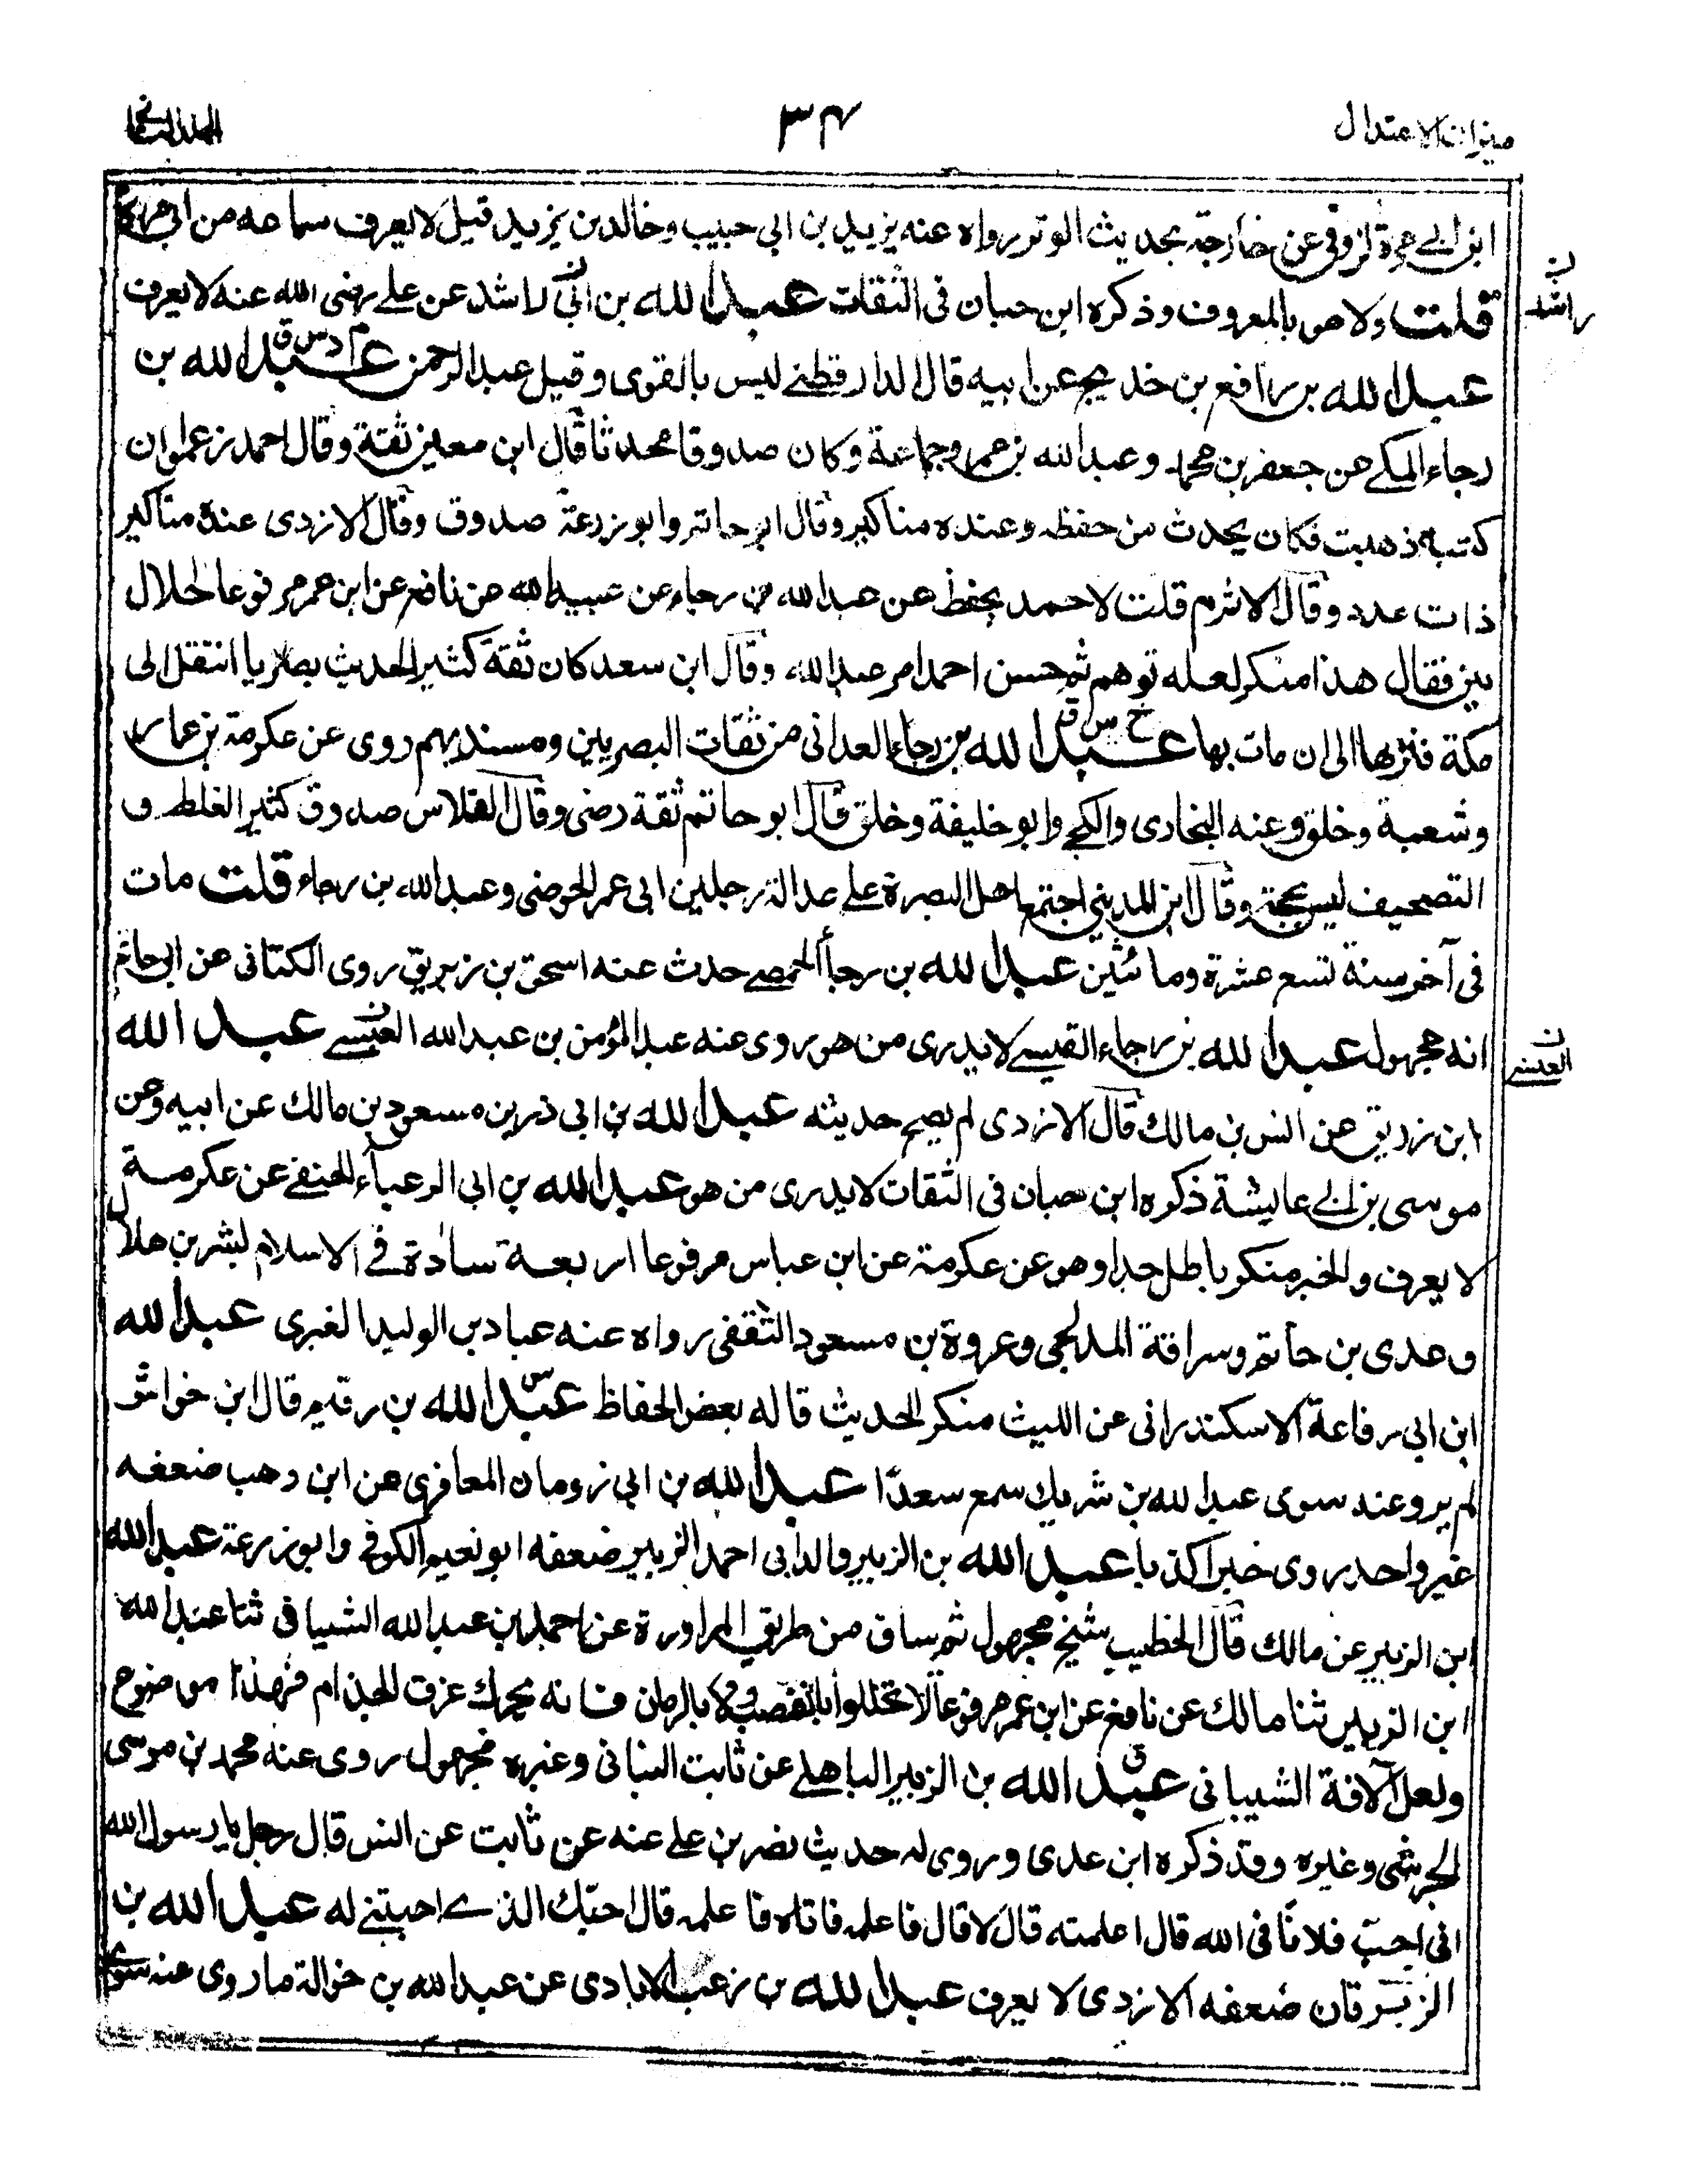 ميزان الاعتدال
٣٤
المجلد الثاني
ابن ابي مرة الزوفي عن خارجة بحديث الوتر رواه عنه يزيد بن ابي حبيب وخالد بن يزيد قيل لا يعرف سماعه من ابي
قلت ولا هو بالمعروف وذكره ابن حبان في الثقات عبد الله بن ابي راشد عن علي رضى الله عنه لا يعرف
راشد
عبد الله بن رافع بن خديج عن ابيه قال الدارقطنے ليس بالقوى وقيل عبد الرحمن عبد الله بن
رجاء المكے عن جعفر بن محمد وعبد الله بن عمر وجماعة وكان صدوقا محدثا قال ابن معين ثقة وقال احمد زعموا ان
كتبه ذهبت فكان يحدث من حفظه وعنده مناكير وقال ابو حاتم وابو زرعة صدوق وقال الازدى عنده مناكير
ذات عدد وقال الاثرم قلت لاحمد يحفظ عن عبد الله بن رجاء عن عبيد الله عن نافع عن ابن عمر مرفوعا الحلال
بين فقال هذا منكر لعله توهم ثم حسن احمد امر عبد الله وقال ابن سعد كان ثقة كثير الحديث بصريا انتقل الى
مكة فنزلها الى ان مات بها عبد الله بن رجاء الغدانى من ثقات البصريين ومسنديهم روى عن عكرمة بن عمار
خ س ق
وشعبة وخلق وعنه البخارى والكجے وابو خليفة وخلق قال ابو حاتم ثقة رضى وقال الفلاس صدوق كثير الغلط و
التصحيف ليس بحجة وقال ابن المدينى اجتمع اهل البصرة على عدالة رجلين ابى عمر الحوضى وعبد الله بن رجاء قلت مات
فى آخر سنة تسع عشرة ومائتين عبد الله بن رجاء الحمصے حدث عنه اسحق بن زبريق روى الكتانى عن ابى حاتم
انه مجهول عبد الله بن رجاء القيسے لا يدرى من هو روى عنه عبد المؤمن بن عبد الله العبسے عبد الله
ابن زريق عن انس بن مالك قال الازدى لم يصح حديثه عبد الله بن ابى ذر بن مسعود بن مالك عن ابيه وعن
موسى بن ابے عايشة ذكره ابن حبان فى الثقات لا يدرى من هو عبد الله بن ابى الرعباء الحنفے عن عكرمة
لا يعرف والخبر منكر باطل جدا وهو عن عكرمة عن ابن عباس مرفوعا اربعة سادة فے الاسلام لبشر بن هلال
وعدى بن حاتم وسراقة المدلجى وعروة بن مسعود الثقفى رواه عنه عباد بن الوليد الغبرى عبد الله
ابن ابى رفاعة الاسكندرانى عن الليث منكر الحديث قاله بعض الحفاظ عبد الله بن رقيم قال ابن خراش
لم يرو عنه سوى عبد الله بن شريك سمع سعدا عبد الله بن ابى رومان المعافرى عن ابن وهب ضعفه
غير واحد روى خبرا كذبا عبد الله بن الزبير والد ابى احمد الزبير ضعفه ابو نعيم الكوفى وابو زرعة عبد الله
ابن الزبير عن مالك قال الخطيب شيخ مجهول ثم ساق من طريق المراورة عن احمد بن عبد الله الشيبانى ثنا عبد الله
ابن الزبير ثنا مالك عن نافع عن ابن عمر مرفوعا لا تخللوا بالقصب ولا بالرمان فانه يحرك عرق الجذام فهذا موضوع
ولعل الآفة الشيبانى عبد الله بن الزبير الباهلے عن ثابت البنانى وغيره مجهول روى عنه محمد بن موسى
الجرشى وغيره وقد ذكره ابن عدى وروى له حديث نصر بن على عنه عن ثابت عن انس قال رجل يا رسول الله
انى احب فلانا فى الله قال اعلمته قال لا قال فاعلمه فاتاه فاعلمه قال احبك الذے احببتنے له عبد الله بن
الزبرقان ضعفه الازدى لا يعرف عبد الله بن زغب الايادى عن عبد الله بن حوالة ما روى عنه سوى